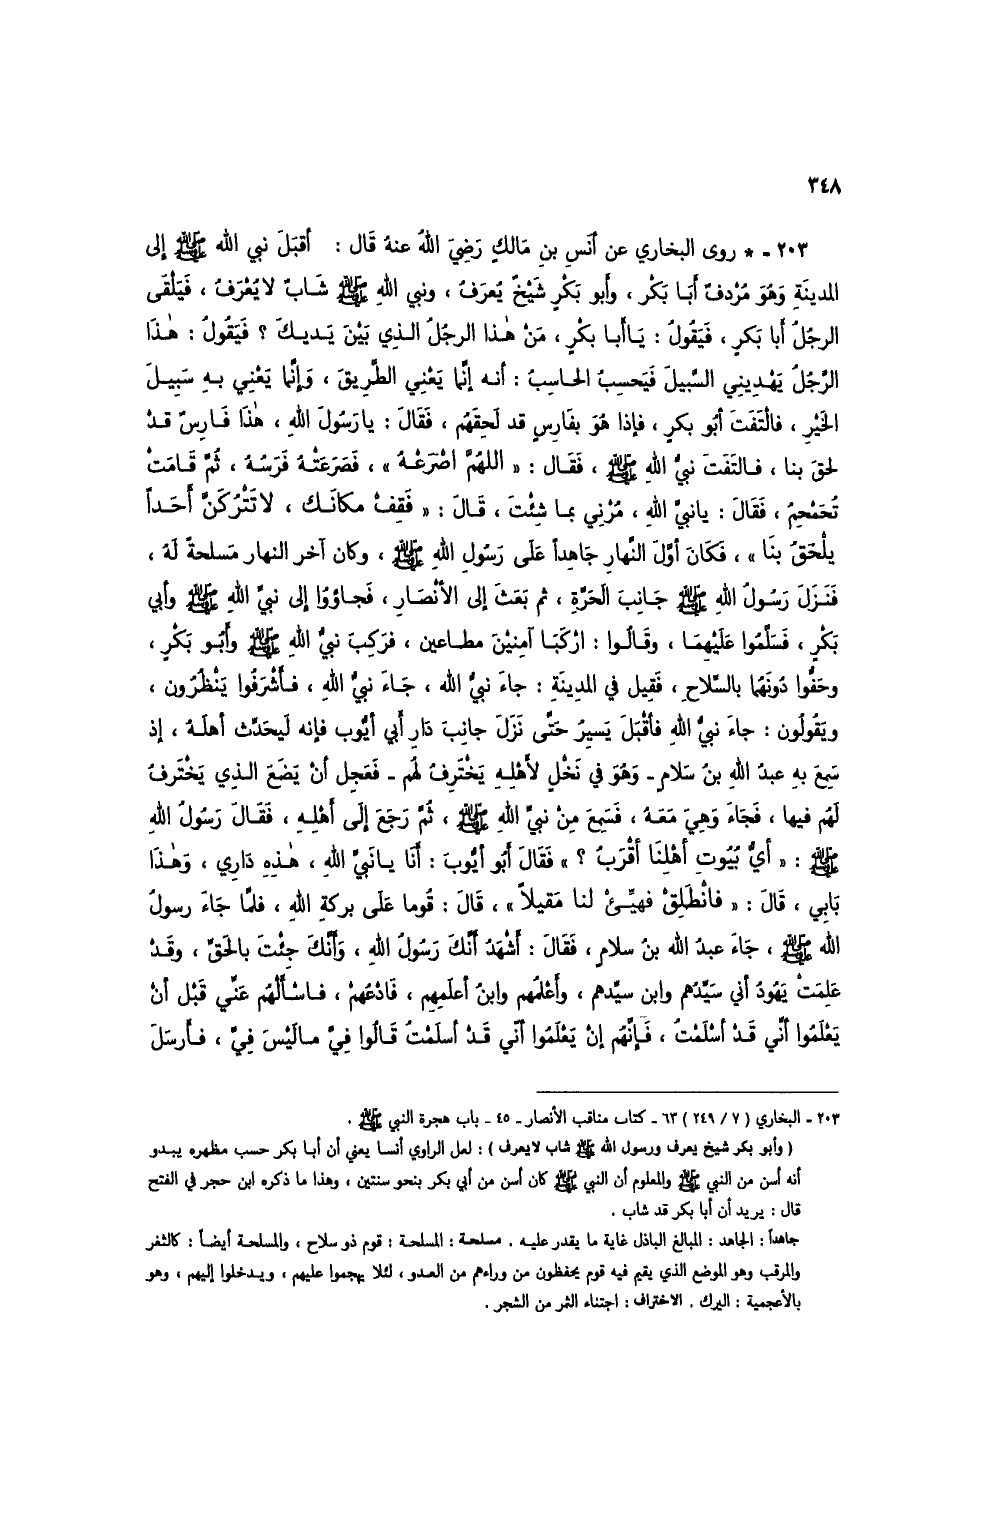 ٣٤٨
٢٠٣ - * روى البخاري عن أَنَسِ بنِ مَالكٍ رَضِيَ اللهُ عنهُ قَال : أقبَلَ نبي الله ﷺ إلى
المدينَةِ وَهُوَ مُرْدفٌ أَبَا بَكْرٍ ، وأَبو بَكْرٍ شَيْخٌ يُعرَفُ ، ونبي اللهِ ﷺ شَابٌ لا يُعْرَفُ ، فَيَلْقَى
الرجُلُ أبا بَكرٍ ، فَيَقُولُ : يَاأَبا بكْرٍ ، مَنْ هٰذا الرجلُ الذي بَيْنَ يَديكَ ؟ فَيَقُولُ : هٰذَا
الرَّجُلُ يَهْدِيني السَّبيلَ فَيَحسِبُ الحَاسِبُ : أنه إنَّما يَعْني الطَّرِيقَ ، وَإنَّما يَعْني بهِ سَبِيلَ
الخَيْرِ ، فالْتَفَتَ أبُو بكرٍ ، فإذا هُوَ بفَارِسٍ قد لَحِقَهُم ، فَقَالَ : يا رَسُولَ اللهِ ، هٰذَا فَارِسٌ قدْ
لحِقَ بنا ، فالتَفَتَ نبيُّ اللهِ ﷺ ، فَقَال : « اللهُمَّ اصْرَعْهُ » ، فَصَرَعَتْهُ فَرَسُهُ ، ثُمَّ قَامَتْ
تُحَمْحِمُ ، فَقَالَ : يانبيَّ اللهِ ، مُرْنِي بما شِئْتَ ، قَالَ : « فَقِفْ مكانَكَ ، لا تَتْرُكَنَّ أَحَداً
يلْحَقُ بنَا » ، فَكَانَ أوَّلَ النَّهارِ جَاهِداً عَلَى رَسُولِ اللهِ ﷺ ، وكان آخر النهار مَسلحةً لَهُ ،
فَنَزَلَ رَسُولُ اللهِ ﷺ جَانِبَ الحَرَّةِ ، ثم بَعَثَ إلى الأَنْصَارِ ، فَجاؤوُا إلى نبيِّ اللهِ ﷺ وأبي
بَكْرٍ ، فَسَلَّمُوا عَلَيْهِمَا ، وقَالُوا : ارْكَبَا آمِنِيْنَ مطاعين ، فَرَكِبَ نبيُّ اللهِ ﷺ وأَبُو بَكْرٍ ،
وحَفُّوا دُونَهُما بالسِّلاحِ ، فَقِيل في المَدِينَةِ : جاءَ نبيُّ الله ، جَاءَ نبيُّ اللهِ ، فأَشْرَفُوا يَنْظُرُون ،
ويَقُولُون : جاءَ نبيُّ اللهِ فأقْبَلَ يَسيرُ حَتَّى نَزَلَ جانِبَ دَارِ أَبي أَيُّوب فإنه لَيحَدِّث أهلَهُ ، إذ
سَمِعَ بهِ عبدُ اللهِ بنُ سَلامٍ - وَهُوَ في نَخْلٍ لأَهْلِهِ يَخْتَرِفُ لَهُم - فَعَجل أنْ يَضَعَ الذي يَخْتَرِفُ
لَهُم فيها ، فَجَاءَ وَهِيَ مَعَهُ ، فَسَمِعَ مِنْ نبيِّ اللهِ ﷺ ، ثُمَّ رَجَعَ إلَى أَهْلِهِ ، فَقَالَ رَسُولُ اللهِ
ﷺ : « أيُّ بُيُوتِ أهْلِنَا أقْرَبُ ؟ » فَقَالَ أَبُو أيُّوبَ : أَنَا يانَبيَّ اللهِ ، هٰذِهِ دَارِي ، وَهٰذَا
بَابِي ، قَالَ : « فانْطَلِقْ فهيِّئْ لنا مَقيلاً » ، قَالَ : قُوما عَلَى بركةِ اللهِ ، فلمَّا جَاءَ رسولُ
الله ﷺ ، جَاءَ عبدُ الله بنُ سلامٍ ، فَقَالَ : أَشْهَدُ أنَّكَ رَسُولُ اللهِ ، وَأَنَّكَ جِئْتَ بالحَقِّ ، وقَدْ
عَلِمَتْ يَهُودُ أني سَيِّدُهم وابن سيِّدهم ، وأَعْلَمُهم وابنُ أعلَمِهِم ، فَادْعُهُمْ ، فاسْأَلْهُم عَنِّي قَبْل أنْ
يَعْلَمُوا أَنِّي قَدْ أسْلَمْتُ ، فَإِنَّهُم إنْ يَعْلَمُوا أنّي قَدْ أسلَمْتُ قَالُوا فيَّ مالَيْسَ فيَّ ، فأَرسَلَ
٢٠٣ - البخاري ( ٧ / ٢٤٩ ) ٦٣ - كتاب مناقب الأنصار - ٤٥ - باب هجرة النبي ﷺ .
( وأبو بكر شيخ يعرف ورسول الله ﷺ شاب لايعرف ) : لعل الراوي أنسا يعني أن أبا بكر حسب مظهره يبدو
أنه أسن من النبي ﷺ والمعلوم أن النبي ﷺ كان أسن من أبي بكر بنحو سنتين ، وهذا ما ذكره ابن حجر في الفتح
قال : يريد أن أبا بكر قد شاب .
جاهداً : الجاهد : المبالغ الباذل غاية ما يقدر عليه . مسلحة : المسلحة : قوم ذو سلاح ، والمسلحة أيضاً : كالثغر
والمرقب وهو الموضع الذي يقيم فيه قوم يحفظون من وراءهم من العدو ، لئلا يهجموا عليهم ، ويدخلوا إليهم ، وهو
بالأعجمية : اليرك . الاختراف : اجتناء الثمر من الشجر .